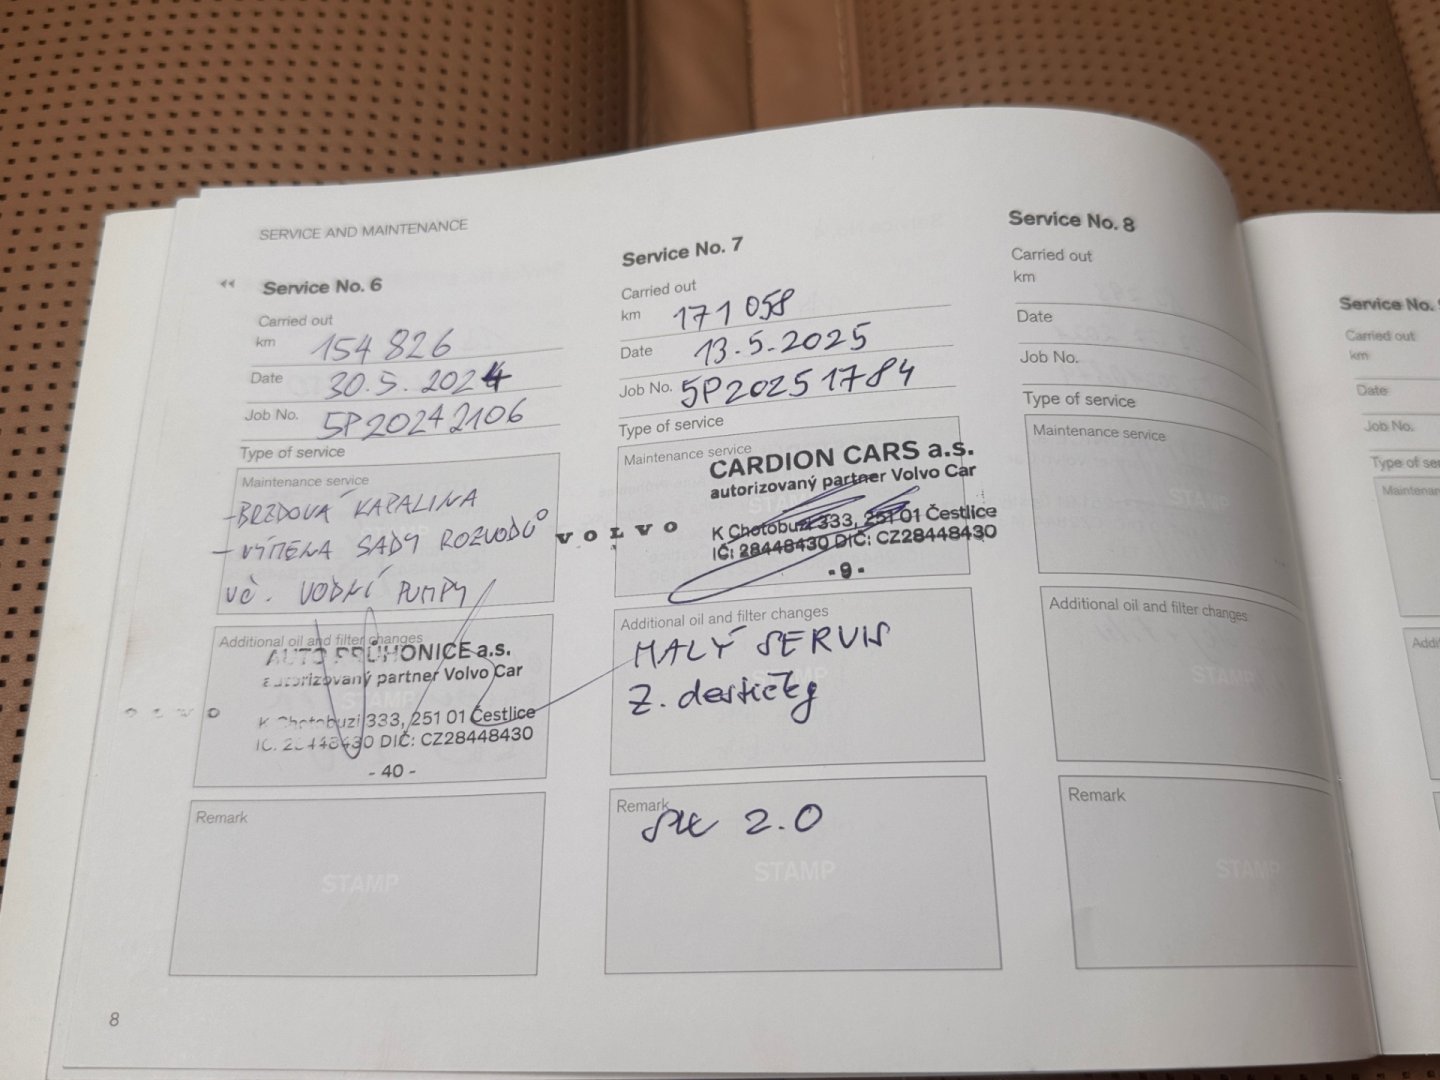 SERVICE AND MAINTENANCE
Service No. 6
Carried out
km 154 826
Date 30.5.2024
Job No. SP20242106
Type of service
Maintenance service
-BRZDOVÁ KAPALINA
- VÝMĚNA SADY ROZVODŮ
VČ. VODNÍ PUMPY
Additional oil and filter changes
AUTO PRŮHONICE a.s.
autorizovaný partner Volvo Car
VOLVO
K Chotobuzi 333, 251 01 Čestlice
IČ: 28448430 DIČ: CZ28448430
- 40 -
Remark
STAMP
8
Service No. 7
Carried out
km 171 058
Date 13.5.2025
Job No. SP20251784
Type of service
Maintenance service
CARDION CARS a.s.
autorizovaný partner Volvo Car
VOLVO
K Chotobuzi 333, 251 01 Čestlice
IČ: 28448430 DIČ: CZ28448430
-9-
Additional oil and filter changes
MALÝ SERVIS
Z. destičky
Remark
2.0
STAMP
Service No. 8
Carried out
km
Date
Job No.
Type of service
Maintenance service
STAMP
Additional oil and filter changes
STAMP
Remark
STAMP
Service No.
Carried out
km
Date
Job No.
Type of